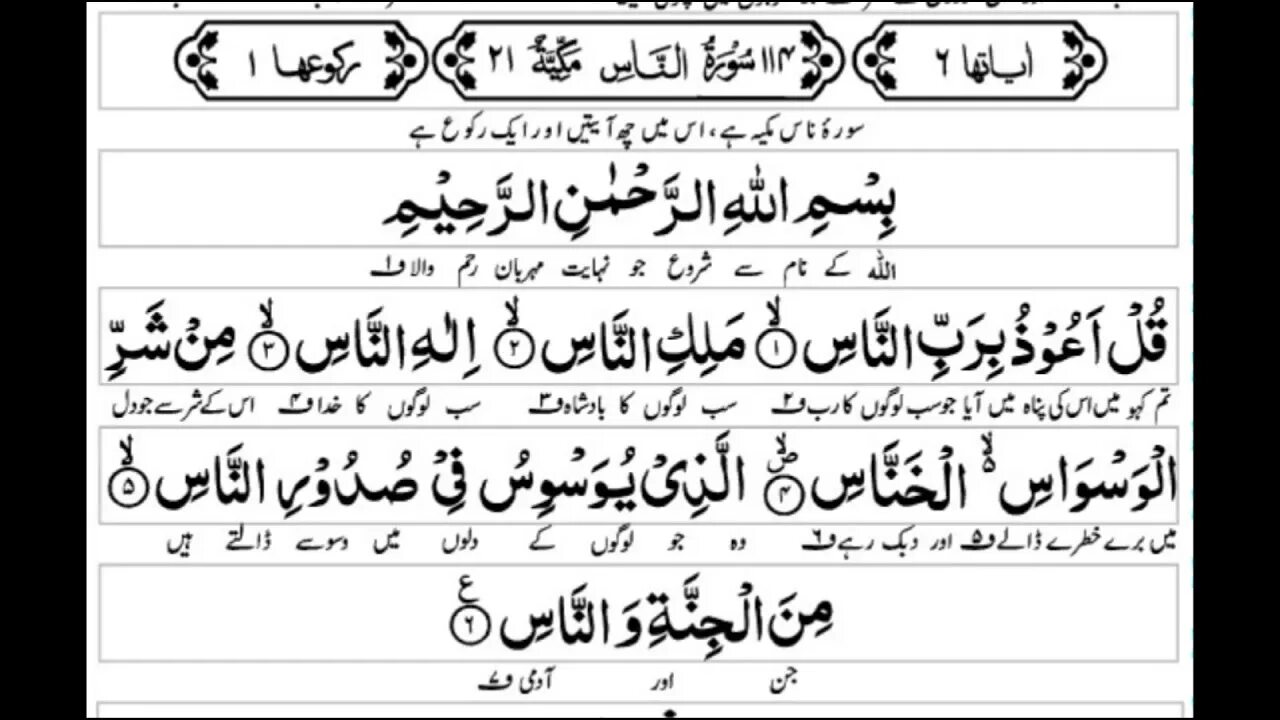 اٰیاتھا ۶ ۱۱۴ سُوْرَۃُ النَّاسِ مَکِّیَّۃٌ ۲۱ رکوعھا ۱
سورۂ ناس مکیہ ہے، اس میں چھ آیتیں اور ایک رکوع ہے
بِسْمِ اللّٰهِ الرَّحْمٰنِ الرَّحِیْمِ
اللہ کے نام سے شروع جو نہایت مہربان رحم والا ف۱
قُلْ اَعُوْذُ بِرَبِّ النَّاسِ ۙ﴿۱﴾ مَلِكِ النَّاسِ ۙ﴿۲﴾ اِلٰهِ النَّاسِ ۙ﴿۳﴾ مِنْ شَرِّ
تم کہو میں اس کی پناہ میں آیا جو سب لوگوں کا رب ف۲ سب لوگوں کا بادشاہ ف۳ سب لوگوں کا خدا ف۴ اس کے شر سے جو دل
الْوَسْوَاسِ ۙ۬ الْخَنَّاسِ ۪ۙ﴿۴﴾ الَّذِیْ یُوَسْوِسُ فِیْ صُدُوْرِ النَّاسِ ۙ﴿۵﴾
میں برے خطرے ڈالے ف۵ اور دبک رہے ف۶ وہ جو لوگوں کے دلوں میں وسوسے ڈالتے ہیں
مِنَ الْجِنَّةِ وَ النَّاسِ ﴿۶﴾ ع
جن اور آدمی ف۷